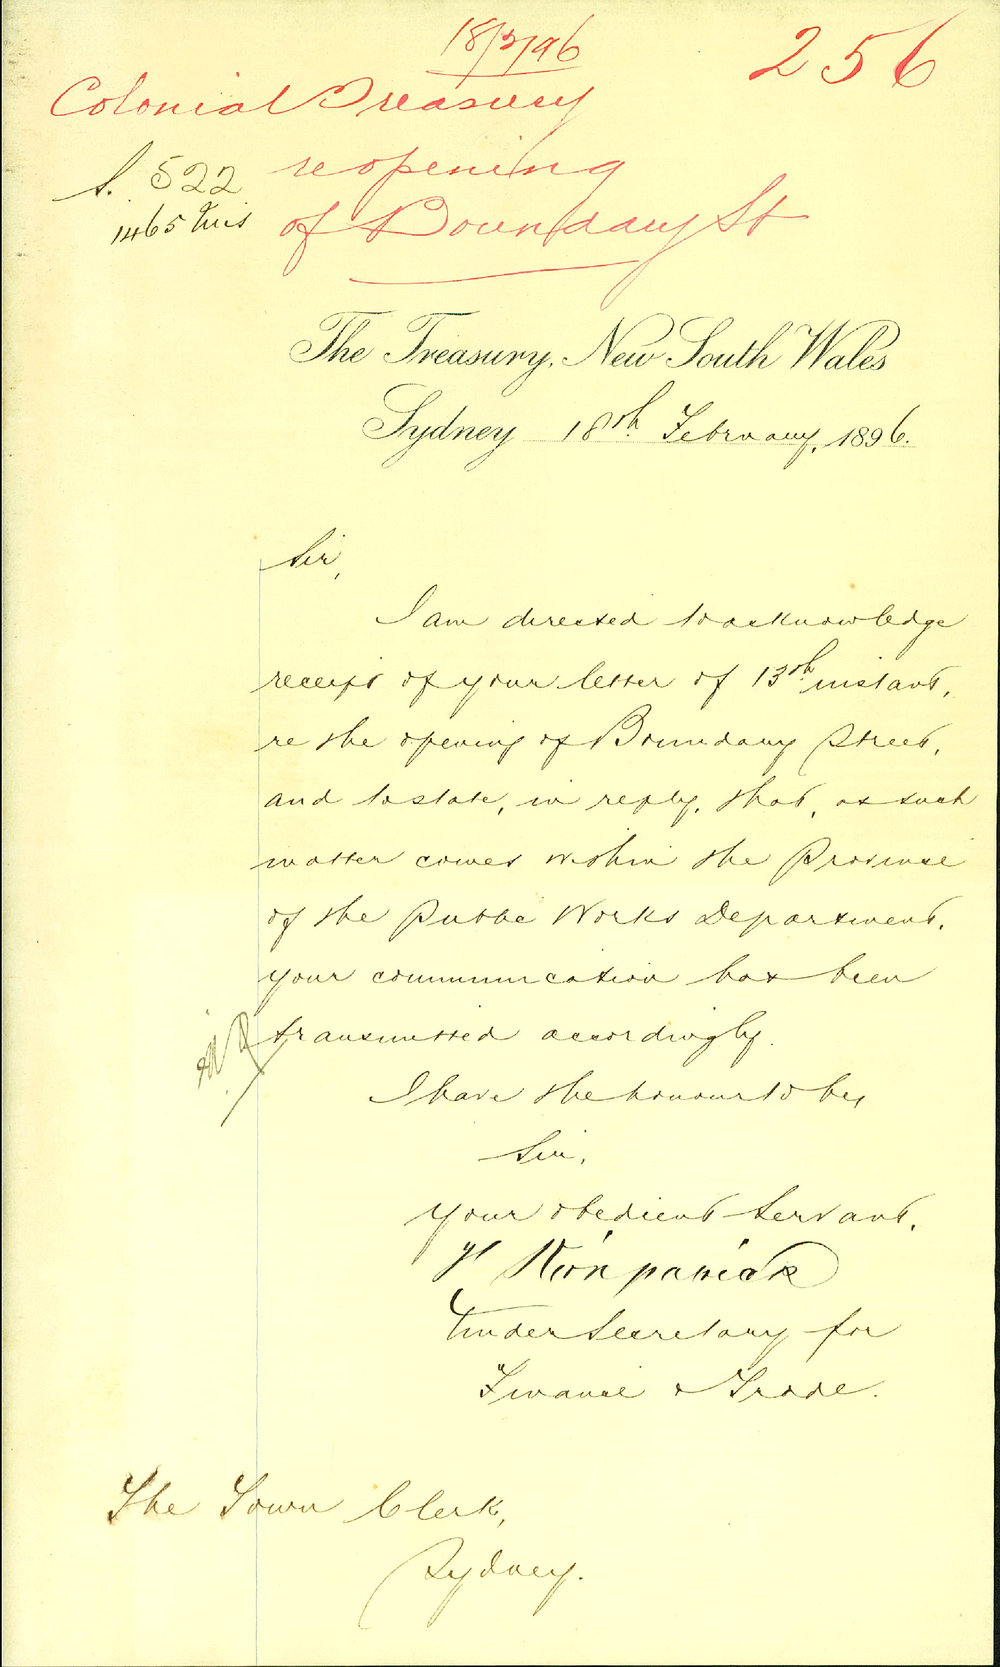 18/2/96
256
Colonial Treasury
S. 522
reopening
1465 this
of Boundary St
The Treasury, New South Wales
Sydney 18th February, 1896.
Sir,
I am directed to acknowledge
receipt of your letter of 13th instant,
re the opening of Boundary Street,
and to state, in reply, that, as such
matter comes within the Province
of the Public Works Department,
your communication has been
transmitted accordingly.
I have the honour to be,
Sir,
Your obedient Servant,
Kirkpatrick
Under Secretary for
Finance & Trade.
The Town Clerk,
Sydney.